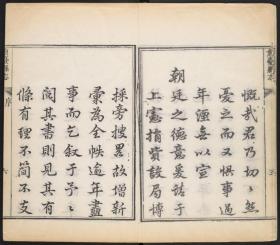 慨哉君乃切切然
憂之而又惧事過
年湮無以宣
朝
廷之德意爰諮于
上憲指貲設局博
採旁搜畧故增新
彙為全帙逾年盡
事而乞叙于予予
閱其書則見其有
條有理不簡不支
序
六